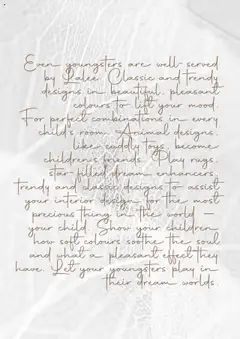 Even youngsters are well-served
by Lalee. Classic and trendy
designs in beautiful, pleasant
colours to lift your mood.
For perfect combinations in every
child's room. Animal designs,
like cuddly toys, become
children's friends. Play rugs,
star-filled dream enhancers,
trendy and classic designs to assist
your interior design for the most
precious thing in the world –
your child. Show your children
how soft colours soothe the soul
and what a pleasant effect they
have. Let your youngsters play in
their dream worlds.